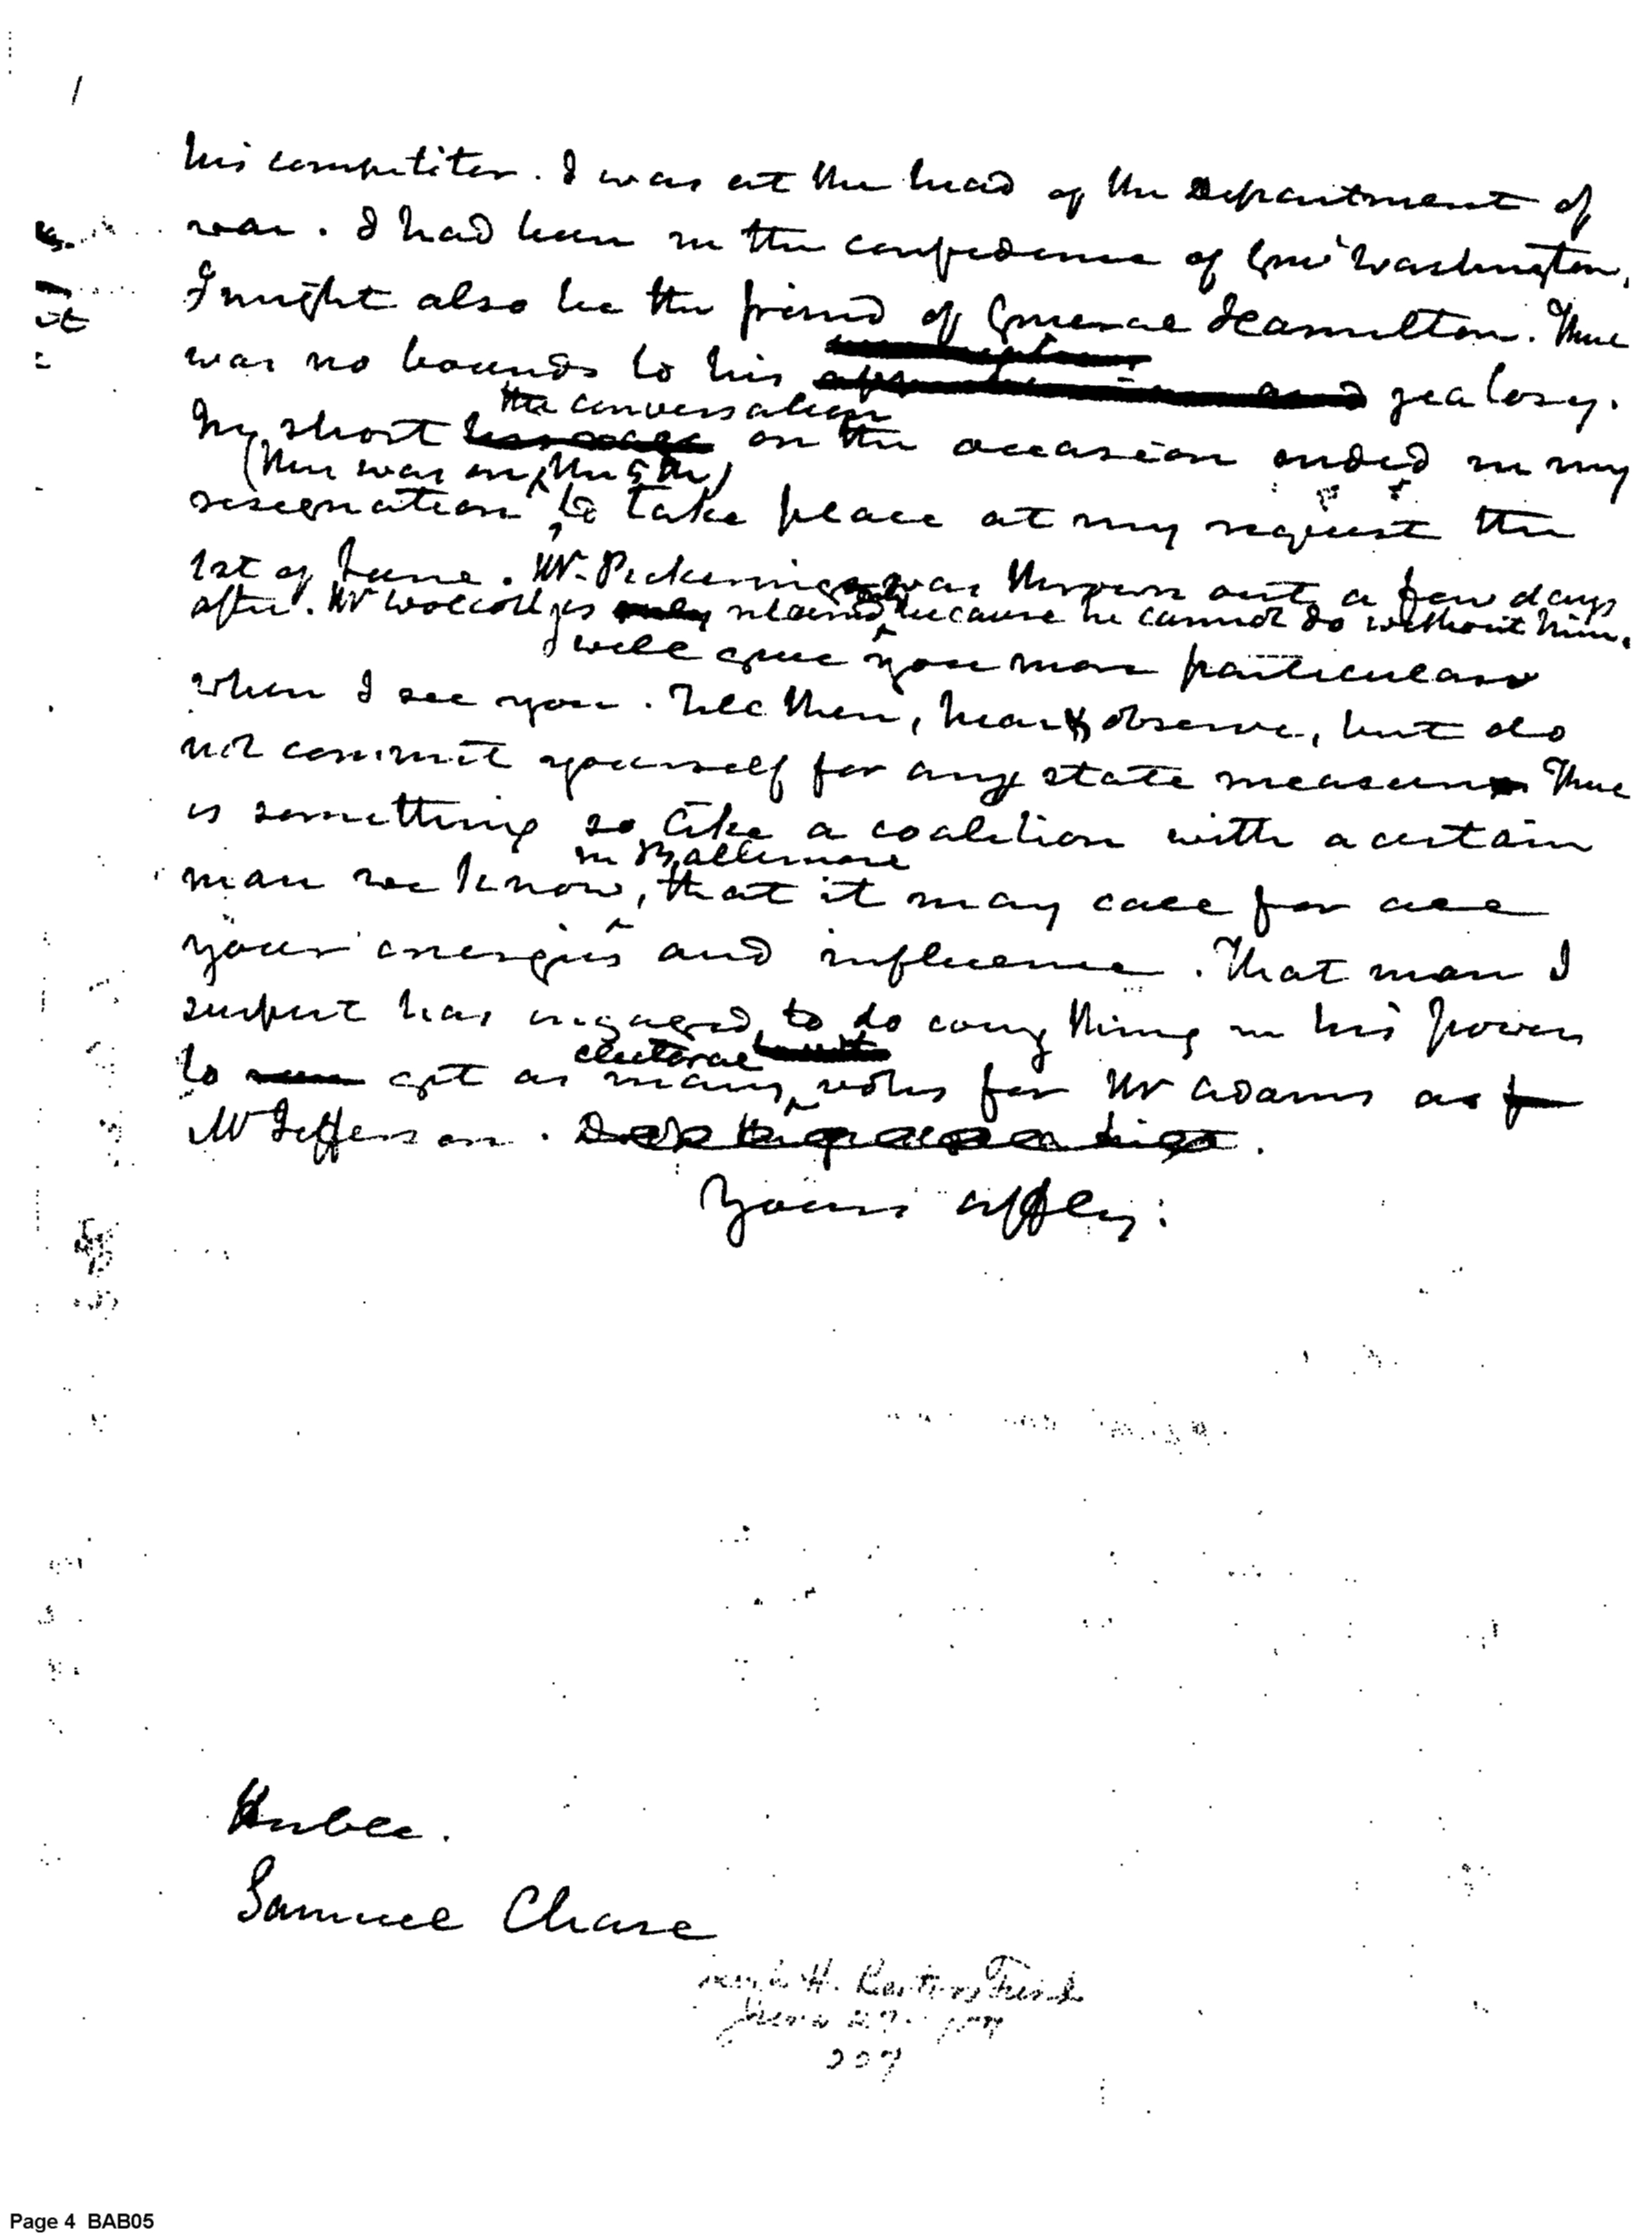 his competitor. I was at the head of the Department of
war. I had been in the confidence of Genl Washington.
I might also be the friend of General Hamilton. There
was no bounds to his jealosy.
the conversation
In short on the occasion ended in my
(this was on the 5th)
resignation to take place at my request the
1st of June. Mr. Pickering was thrown out a few days
after. Mr Wolcott is only retained because he cannot do without him.
I will give you more particulars
when I see you. Till then, hear & observe, but do
not commit yourself for any state measure There
is something so like a coalition with a certain
in Baltimore
man we know, that it may call for all
your energies and influence. That man I
suspect has engaged to do any thing in his power
electoral
to get as many votes for Mr Adams as
Mr Jefferson.
Yours affly:
Honble.
Samuel Chase
June 27
207
Page 4 BAB05